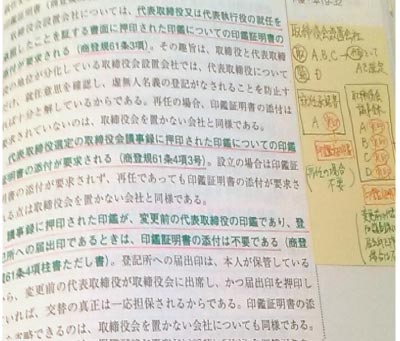 取締役会設置会社については、代表取締役又は代表執行役の就任を
承諾したことを証する書面に押印された印鑑についての印鑑証明書の
添付が要求される（商登規61条3項）。その趣旨は、取締役と代表取締
の地位が分化している取締役会設置会社では、代表取締役について
だけ、就任意思を確認し、虚無人名義の登記がなされることを防止す
れば十分と解しているからである。再任の場合、印鑑証明書の添付は
要求されていないのは、取締役会を置かない会社と同様である。
代表取締役選定の取締役会議事録に押印された印鑑についての印鑑
証明書の添付が要求される（商登規61条4項3号）。設立の場合は印鑑
証明書の添付が要求されず、再任であっても印鑑証明書の添付が要求さ
れる点は取締役会を置かない会社と同様である。
議事録に押印された印鑑が、変更前の代表取締役の印鑑であり、登
記所への届出印であるときは、印鑑証明書の添付は不要である（商登
規61条4項柱書ただし書）。登記所への届出印は、本人が保管している
から、変更前の代表取締役が取締役会に出席し、かつ届出印を押印し
ていれば、交替の真正は一応担保されるからである。印鑑証明書の添
を省略できるのは、取締役会を置かない会社についても同様である。
取締役会設置会社
取 A,B,C
D
A
A
B
C
D
再任の場合
不要